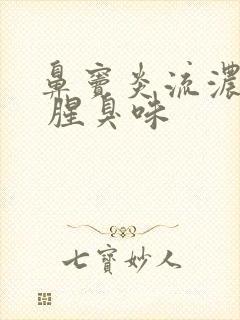 鼻窦炎流濃
腥臭味
七寶妙人